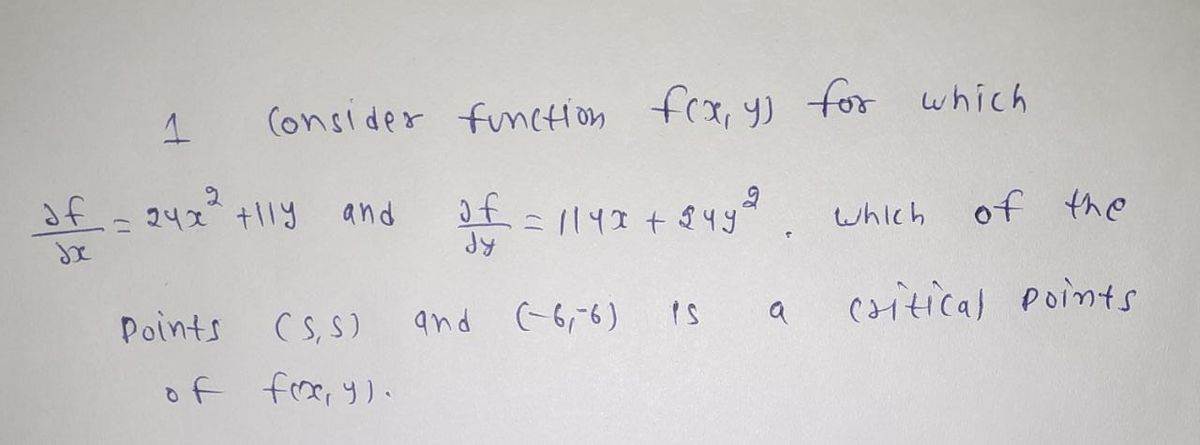 1 Consider function f(x, y) for which
∂f/∂x = 24x² + 11y and ∂f/∂y = 114x + 24y². which of the
points (5,5) and (-6,-6) is a critical points
of f(x, y).